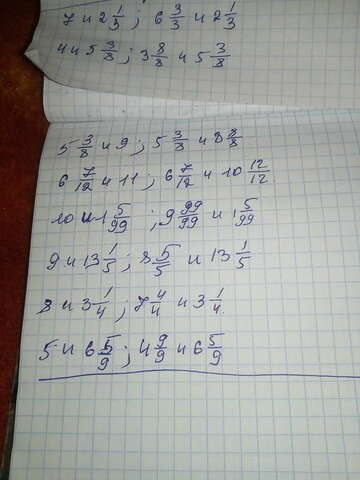 7 и 2 1/3 ; 6 3/3 и 2 1/3
4 и 5 3/8 ; 3 8/8 и 5 3/8
5 3/8 и 9 ; 5 3/8 и 8 8/8
6 7/12 и 11 ; 6 7/12 и 10 12/12
10 и 1 5/99 ; 9 99/99 и 1 5/99
9 и 13 1/5 ; 8 5/5 и 13 1/5
8 и 3 1/4 ; 7 4/4 и 3 1/4
5 и 6 5/9 ; 4 9/9 и 6 5/9